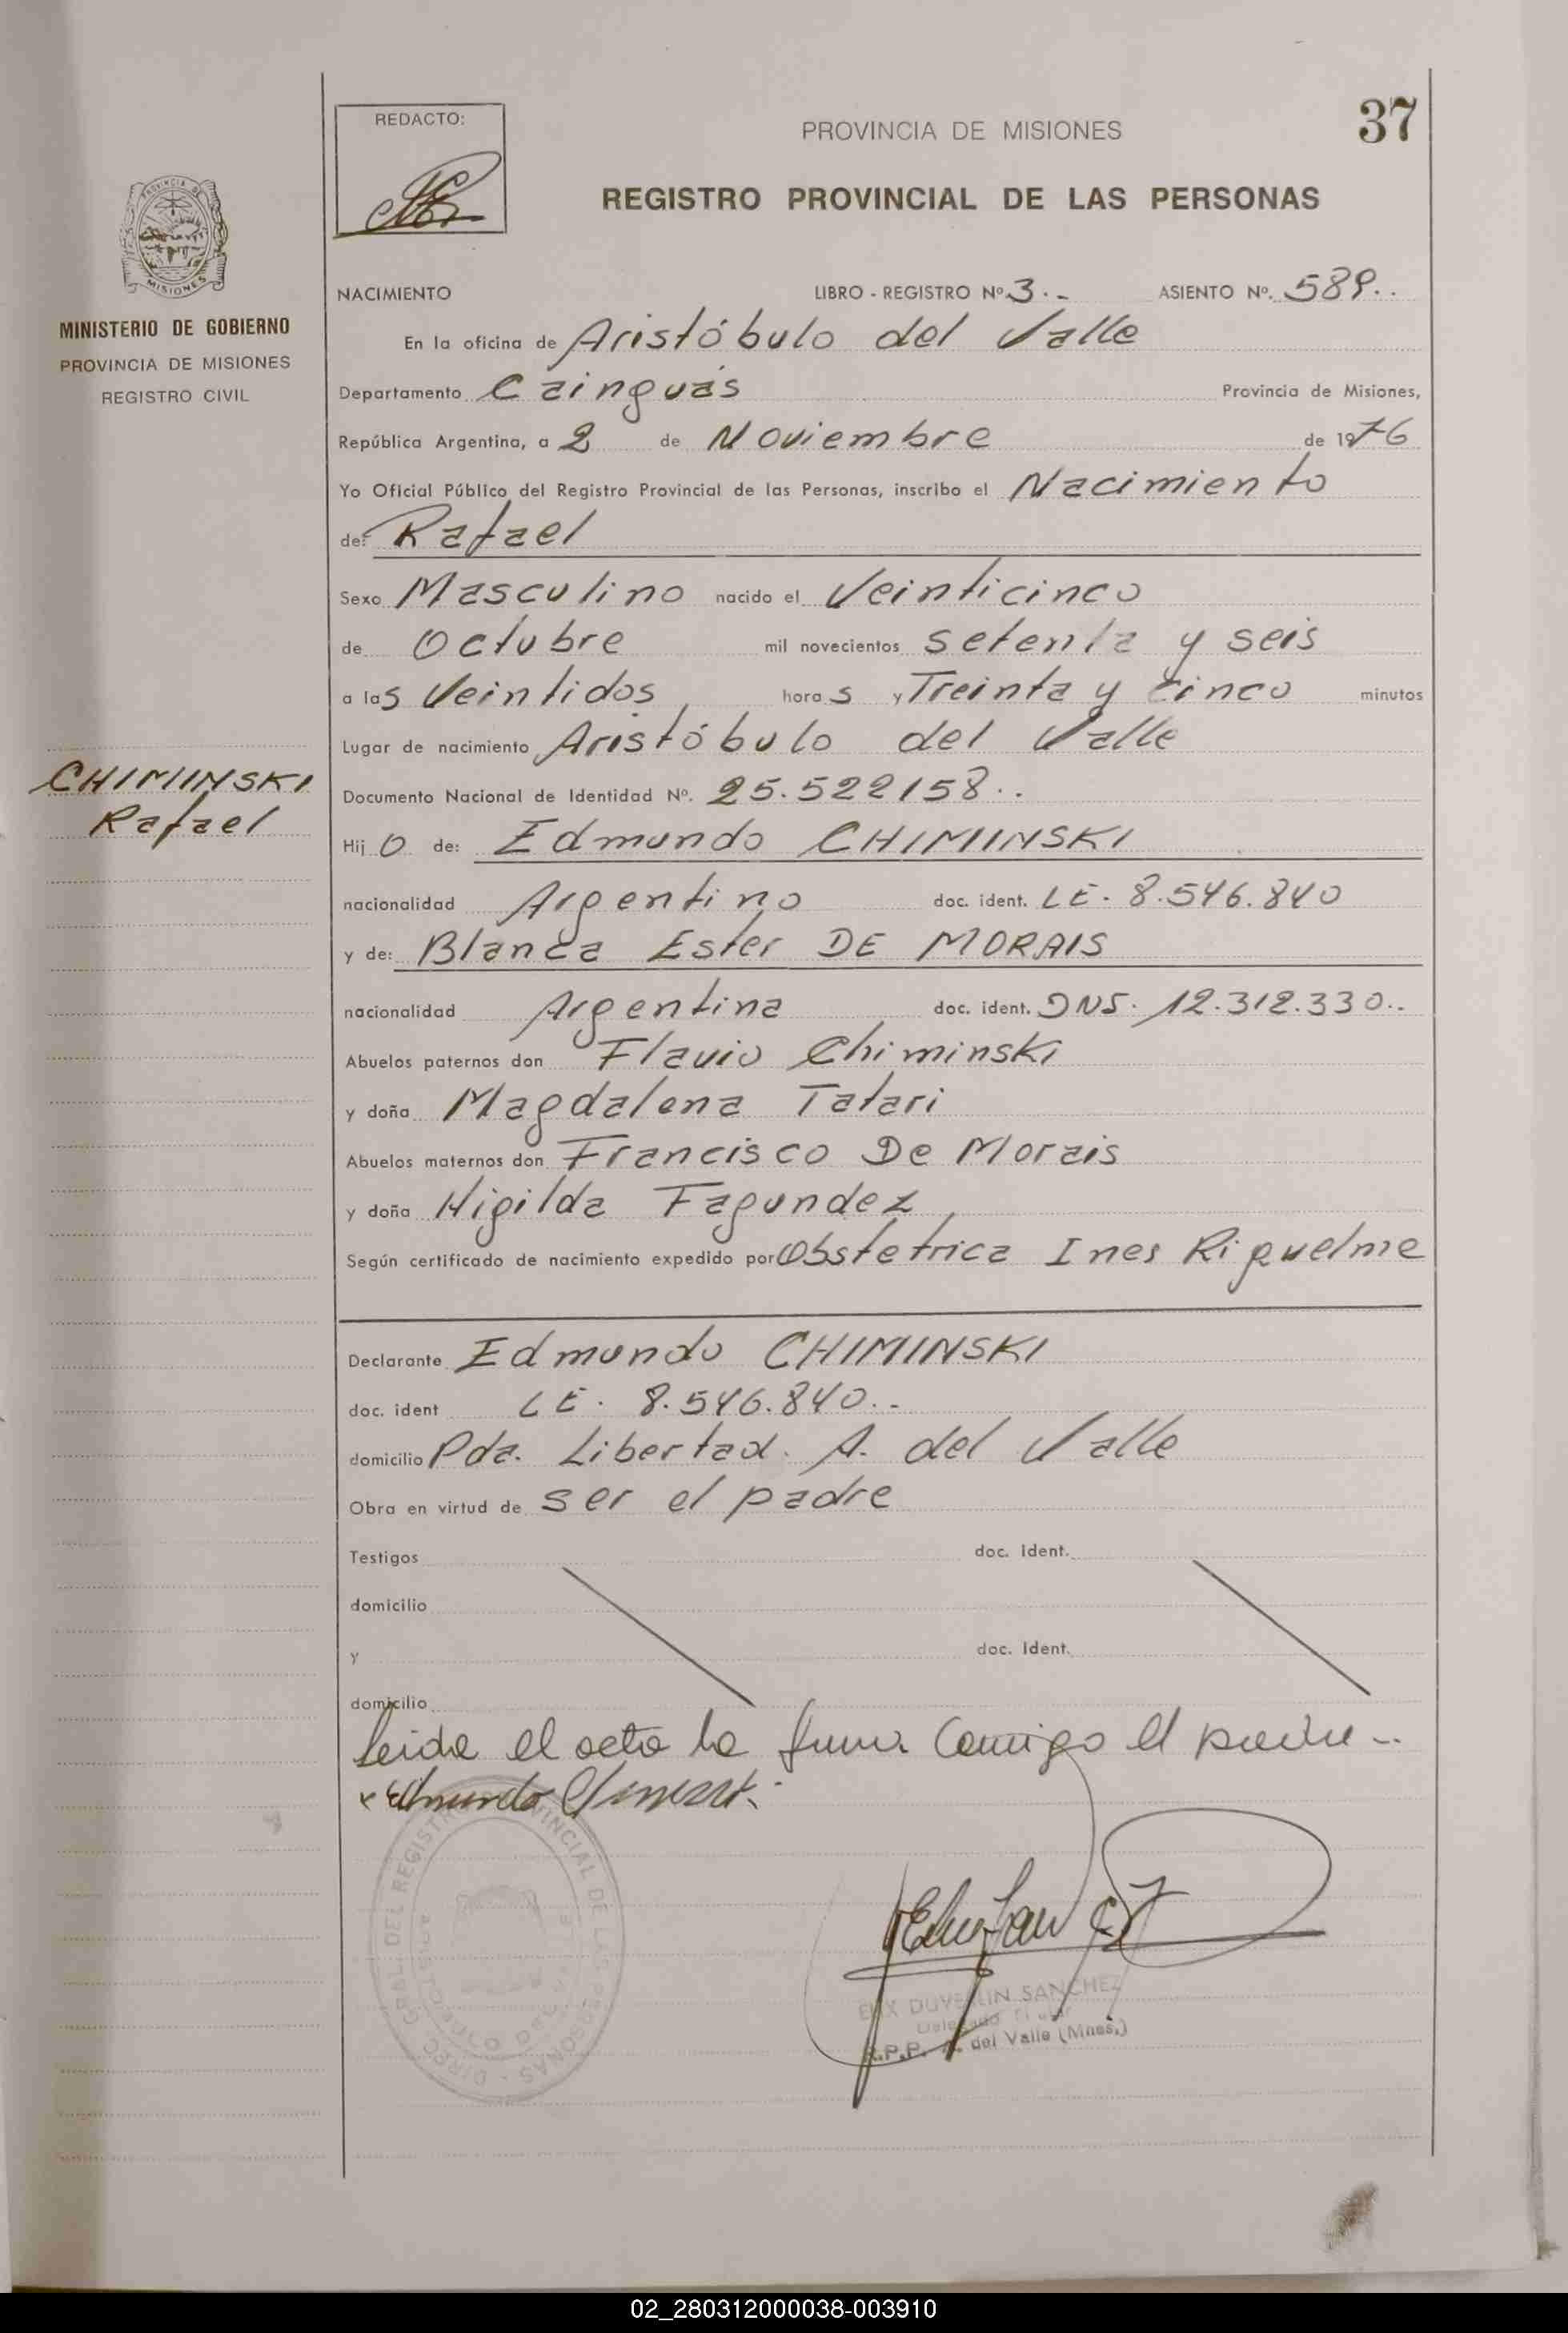 37
REDACTO:
PROVINCIA DE MISIONES
REGISTRO PROVINCIAL DE LAS PERSONAS
PROVINCIA DE
MISIONES
MINISTERIO DE GOBIERNO
PROVINCIA DE MISIONES
REGISTRO CIVIL
NACIMIENTO LIBRO - REGISTRO Nº 3.- ASIENTO Nº. 589..
En la oficina de Aristóbulo del Valle
Departamento Cainguás Provincia de Misiones,
República Argentina, a 2 de Noviembre de 1976
Yo Oficial Público del Registro Provincial de las Personas, inscribo el Nacimiento
de: Rafael
Sexo Masculino nacido el Veinticinco
de Octubre mil novecientos setenta y seis
a las Veintidos horas y Treinta y cinco minutos
Lugar de nacimiento Aristóbulo del Valle
CHIMINSKI
Rafael
Documento Nacional de Identidad Nº. 25.522158..
Hijo de: Edmundo CHIMINSKI
nacionalidad Argentino doc. ident. LE. 8.546.840
y de: Blanca Ester DE MORAIS
nacionalidad Argentina doc. ident. DNS. 12.312.330..
Abuelos paternos don Flavio Chiminski
y doña Magdalena Tatari
Abuelos maternos don Francisco De Morais
y doña Higilda Fagundez
Según certificado de nacimiento expedido por Obstetrica Ines Riquelme
Declarante Edmundo CHIMINSKI
doc. ident LE. 8.546.840..-
domicilio Pda. Libertad. A. del Valle
Obra en virtud de ser el padre
Testigos doc. ident.
domicilio
y doc. Ident.
domicilio
Leida el acta la firma Conmigo el padre --
Edmundo
DIREC. GRAL. DEL REGISTRO PROVINCIAL DE LAS PERSONAS
DUVERLIN SANCHEZ
Delegado Titular
R.P.P. A. del Valle (Mnes.)
02_280312000038-003910